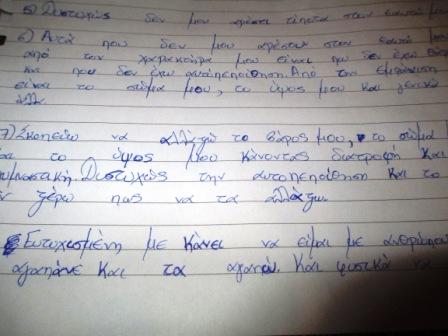 5) Δυστυχώς δεν μου αρέσει τίποτα στον εαυτό μου
6) Αυτά που δεν μου αρέσουν στον εαυτό μου
από τον χαρακτήρα μου είναι που δεν έχω
και που δεν έχω αυτοπεποίθηση. Από την εμφάνιση
είναι το σώμα μου, το ύψος μου και γενικά
όλα.
7) Σκοπεύω να αλλάξω το βάρος μου, το σώμα
και το ύψος μου κάνοντας διατροφή και
γυμναστική. Δυστυχώς την αυτοπεποίθηση και το
ξέρω πως να τα αλλάξω.
Ευτυχισμένη με κάνει να είμαι με ανθρώπου
αγαπάνε και τα αγαπάω. Και φυσικά να